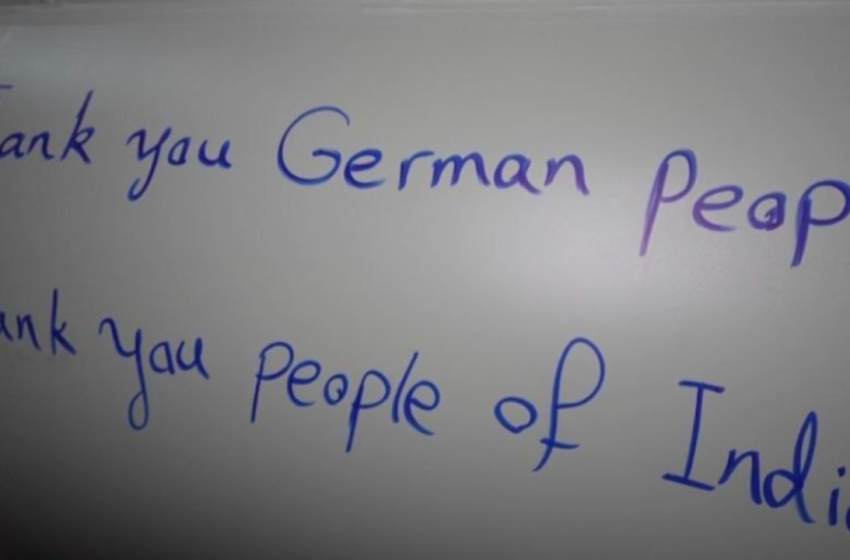 ank you German Peop
ank you people of Indi